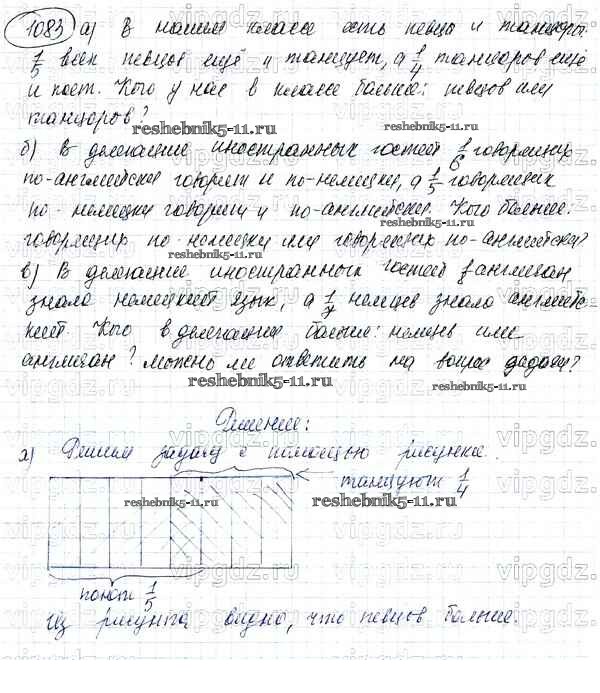 1083 а) В нашем классе есть певцы и танцоры.
1/5 всех певцов ещё и танцует, а 1/4 танцоров ещё
и поет. Кого у нас в классе больше: певцов или
танцоров?
reshebnik5-11.ru
reshebnik5-11.ru
б) В делегации иностранных гостей 1/6 говорящих
по-английски говорят и по-немецки, а 1/5 говорящих
по-немецки говорят и по-английски. Кого больше:
говорящих по-немецки или говорящих по-английски?
в) В делегации иностранных гостей англичан
знало немецкий язык, а 1/7 немцев знало английс-
кий. Кого в делегации больше: немцев или
англичан? Можно ли ответить на вопрос задачи?
reshebnik5-11.ru
reshebnik5-11.ru
Решение:
а) Решим задачу с помощью рисунка.
танцуют 1/4
reshebnik5-11.ru
reshebnik5-11.ru
поют 1/5
Из рисунка видно, что певцов больше.
vipgdz.ru